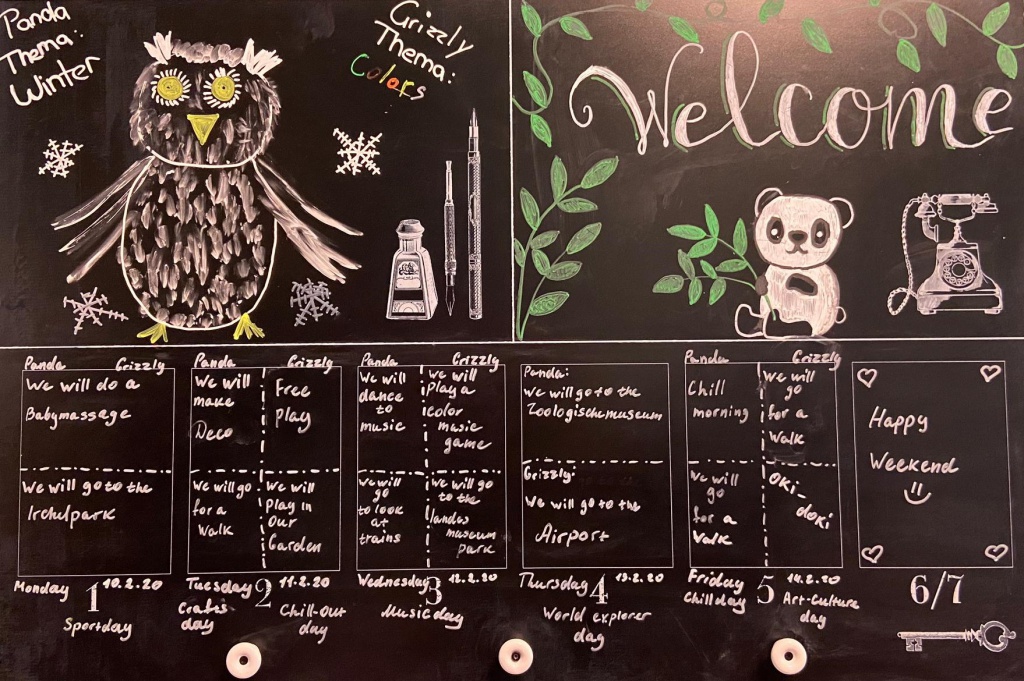 Panda
Thema:
Winter
Grizzly
Thema:
Colors
Welcome
Panda Grizzly
We will do a
Babymassage
We will go to the
Irchelpark
Monday 1 10.2.20
Sportday
Panda Grizzly
We will
make
Deco
Free
Play
We will go
for a
walk
We will
Play in
our
Garden
Tuesday 2 11.2.20
Crafts
day
Chill-Out
day
Panda Grizzly
We will
dance
to
music
We will
Play a
color
music
game
We will
go
to look
at
trains
We will go
to the
landes
museum
park
Wednesday 3 12.2.20
Music day
Panda:
We will go to the
Zoologischemuseum
Grizzly:
We will go to the
Airport
Thursday 4 13.2.20
World explorer
day
Panda Grizzly
Chill
morning
We will
go
for a
walk
We will
go
for a
walk
Oki-
doki
Friday 5 14.2.20
Chillday
Art-Culture
day
Happy
Weekend
6/7